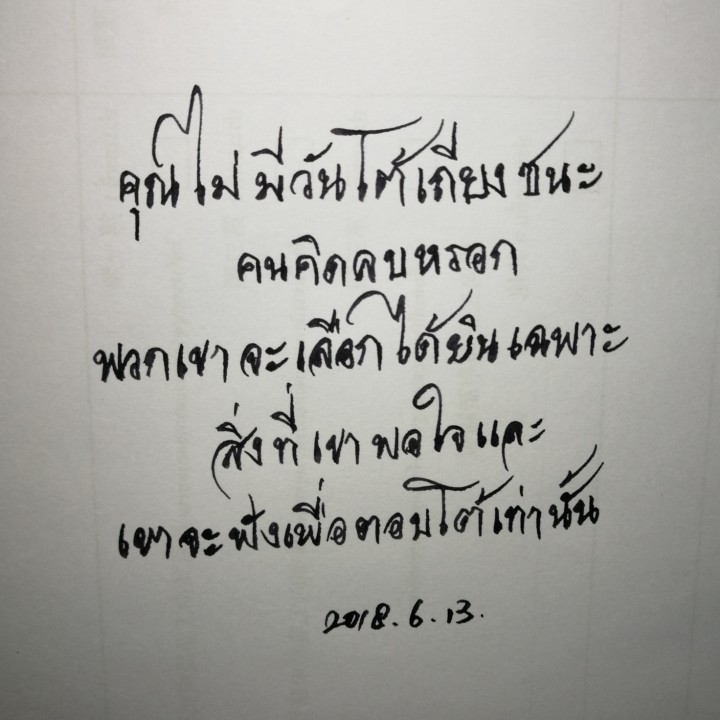 คุณไม่มีวันโต้เถียงชนะ
คนคิดลบหรอก
พวกเขาจะเลือกได้ยินเฉพาะ
สิ่งที่เขาพอใจและ
เขาจะฟังเพื่อตอบโต้เท่านั้น
2018.6.13.